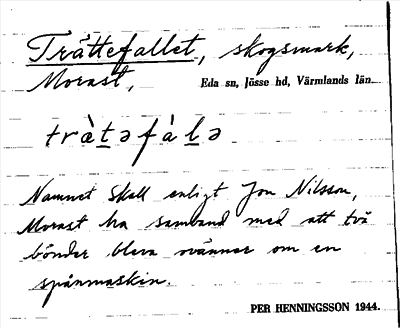 Trättefallet, skogsmark,
Morast, Eda sn, Jösse hd, Värmlands län.
tràt̲əfàl̲ə
Namnet skall enligt Jon Nilsson,
Morast ha samband med att två
bönder bleva ovänner om en
spånmaskin.
PER HENNINGSSON 1944.